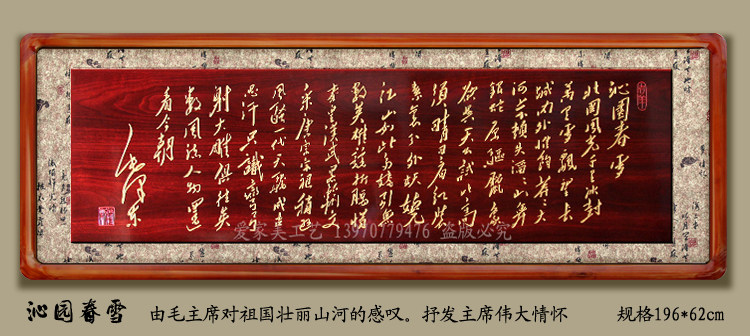 沁園春雪
北國風光千里冰封
万里雪飄望長
城內外惟餘莽莽大
河上下頓失滔滔山舞
銀蛇原驅臘象
欲与天公試比高
須晴日看紅裝
素裹分外妖嬈
江山如此多嬌引無
數英雄競折腰惜
秦皇漢武略輸文
采唐宗宋祖稍遜
風騷一代天驕成吉
思汗只識彎弓
射大雕俱往矣
數風流人物還
看今朝
毛澤東
爱家美工艺 13970779476 盗版必究
沁园春雪 由毛主席对祖国壮丽山河的感叹。抒发主席伟大情怀 规格196*62cm